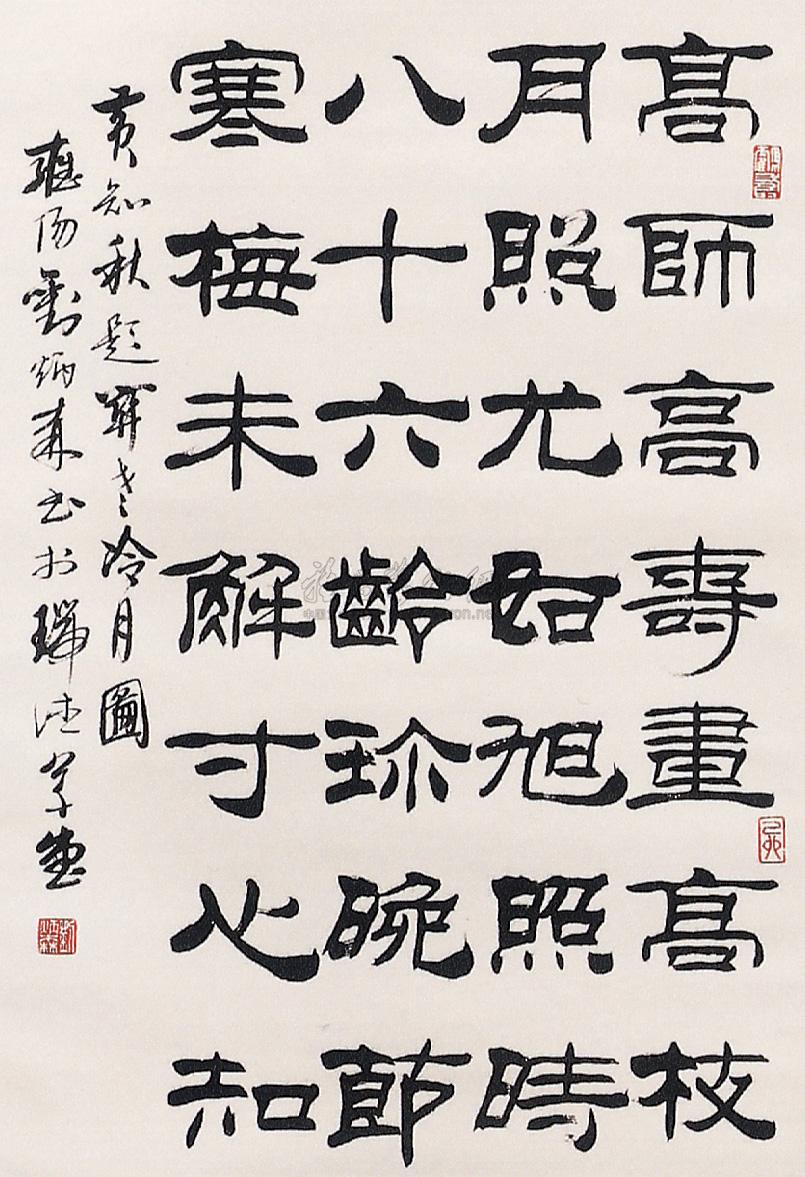 高師高壽畫高枝
月照尤如旭照時
八十六齡珍晚節
寒梅未解寸心知
黃知秋題冷月圖
劉炳森書於瑞德草堂